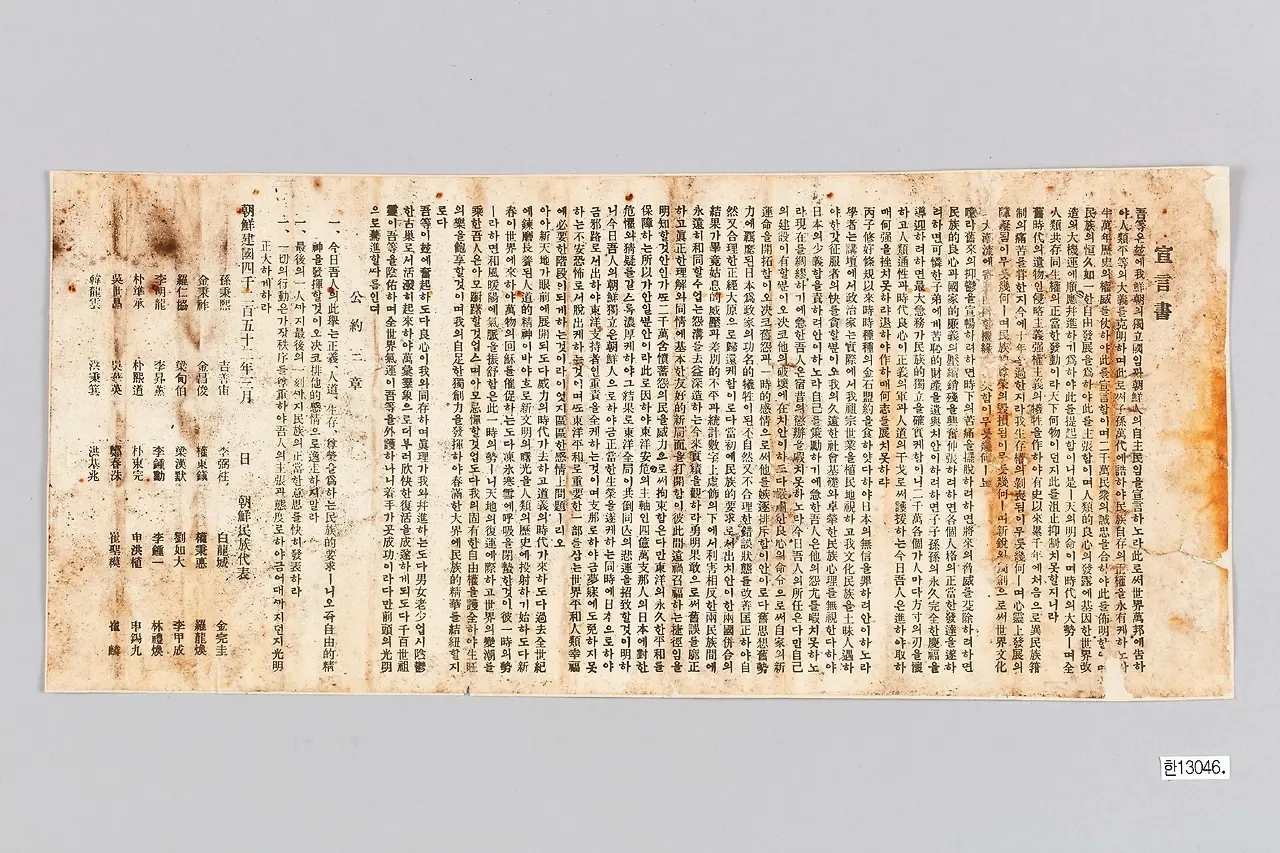 宣言書
吾等은玆에我鮮朝의獨立國임과朝鮮人의自主民임을宣言하노라此로써世界萬邦에告하
야人類平等의大義를克明하며此로써子孫萬代에誥하야民族自存의正權을永有케하노라
半萬年歷史의權威를仗하야此를宣言함이며二千萬民衆의誠忠을合하야此를佈明함이며
民族의恒久如一한自由發展을爲하야此를主張함이며人類的良心의發露에基因한世界改
造의大機運에順應幷進하기爲하야此를提起함이니是ㅣ天의明命이며時代의大勢ㅣ며全
人類共存同生權의正當한發動이라天下何物이던지此를沮止抑制치못할지니라
舊時代의遺物인侵略主義强權主義의犧牲을作하야有史以來累千年에처음으로異民族箝
制의痛苦를嘗한지今에十年을過한지라我生存權의剝喪됨이무릇幾何ㅣ며心靈上發展의
障礙됨이무릇幾何ㅣ며民族的尊榮의毁損됨이무릇幾何ㅣ며新銳와獨創으로써世界文化
大潮流에寄與補裨할機緣을 失함이무릇幾何ㅣ뇨
噫라舊來의抑鬱을宣暢하려하면時下의苦痛을擺脫하려하면將來의脅威를芟除하려하면
民族的良心과國家的廉義의壓縮銷殘을興奮伸張하려하면各個人格의正當한發達을遂하
려하면可憐한子弟에게苦恥的財產을遺與치안이하려하면子子孫孫의永久完全한慶福을
導迎하려하면最大急務가民族的獨立을確實케함이니二千萬各個가人마다方寸의刃을懷
하고人類通性과時代良心이正義의軍과人道의干戈로써護援하는今日吾人은進하야取하
매何强을挫치못하랴退하야作하매何志를展치못하랴
丙子修好條規以來時時種種의金石盟約을食하얏다하야日本의無信을罪하려안이하노라
學者는講壇에서政治家는實際에서我祖宗世業을植民地視하고我文化民族을土昧人遇하
야한갓征服者의快를貪할뿐이오我의久遠한社會基礎와卓犖한民族心理를無視한다하야
日本의少義함을責하려안이하노라自己를策勵하기에急한吾人은他의怨尤를暇치못하노
라現在를綢繆하기에急한吾人은宿昔의懲辦을暇치못하노라今日吾人의所任은다만自己
의建設이有할뿐이오決코他의破壞에在치안이하도다嚴肅한良心의命令으로써自家의新
運命을開拓함이오決코舊怨과一時的感情으로써他를嫉逐排斥함이안이로다舊思想舊勢
力에羈縻된日本爲政家의功名的犧牲이된不自然又不合理한錯誤狀態를改善匡正하야自
然又合理한正經大原으로歸還케함이로다當初에民族的要求로서出치안이한兩國倂合의
結果가畢竟姑息的威壓과差別的不平과統計數字上虛飾의下에서利害相反한兩民族間에
永遠히和同할수업는怨溝를去益深造하는今來實績을觀하라勇明果敢으로써舊誤를廓正
하고眞正한理解와同情에基本한友好的新局面을打開함이彼此間遠禍召福하는捷徑임을
明知할것안인가또二千萬含憤蓄怨의民을威力으로써拘束함은다만東洋의永久한平和를
保障하는所以가안일뿐안이라此로因하야東洋安危의主軸인四億萬支那人의日本에對한
危懼와猜疑를갈스록濃厚케하야그結果로東洋全局이共倒同亡의悲運을招致할것이明하
니今日吾人의朝鮮獨立은朝鮮人으로하야금正當한生榮을遂케하는同時에日本으로하야
금邪路로서出하야東洋支持者인重責을全케하는것이며支那로하야금夢寐에도免하지못
하는不安恐怖로서脫出케하는것이며또東洋平和로重要한一部를삼는世界平和人類幸福
에必要한階段이되게하는것이라이엇지區區한感情上問題ㅣ리오
아아新天地가眼前에展開되도다威力의時代가去하고道義의時代가來하도다過去全世紀
에鍊磨長養된人道的精神이바야흐로新文明의曙光을人類의歷史에投射하기始하도다新
春이世界에來하야萬物의回穌를催促하는도다凍氷寒雪에呼吸을閉蟄한것이彼一時의勢
ㅣ라하면和風暖陽에氣脈을振舒함은此一時의勢ㅣ니天地의復運에際하고世界의變潮를
乘한吾人은아모躕躇할것업스며아모忌憚할것업도다我의固有한自由權을護全하야生旺
의樂을飽享할것이며我의自足한獨創力을發揮하야春滿한大界에民族的精華를結紐할지
로다
吾等이玆에奮起하도다良心이我와同存하며眞理가我와幷進하는도다男女老少업시陰鬱
한古巢로서活潑히起來하야萬彙羣象으로더부러欣快한復活을成遂하게되도다千百世祖
靈이吾等을陰佑하며全世界氣運이吾等을外護하나니着手가곳成功이라다만前頭의光明
으로驀進할따름인뎌
公約三章
一、今日吾人의此擧는正義、人道、生存、尊榮을爲하는民族的要求ㅣ니오즉自由的精
神을發揮할것이오決코排他的感情으로逸走하지말라
一、最後의一人까지最後의一刻까지民族의正當한意思를快히發表하라
一、一切의行動은가장秩序를尊重하야吾人의主張과態度로하야금어대까지던지光明
正大하게하라
朝鮮建國四千二百五十二年三月 日 朝鮮民族代表
孫秉熙 吉善宙 李弼柱 白龍城 金完圭
金秉祚 金昌俊 權東鎭 權秉悳 羅龍煥
羅仁協 梁甸伯 梁漢默 劉如大 李甲成
李明龍 李昇薰 李鍾勳 李鍾一 林禮煥
朴準承 朴熙道 朴東完 申洪植 申錫九
吳世昌 吳華英 鄭春洙 崔聖模 崔麟
韓龍雲 洪秉箕 洪基兆
한13046.